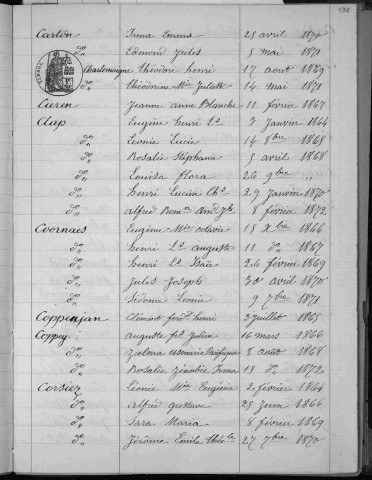 Carton Irma Emma 25 avril 1870
do Edmond Jules 5 mai 1871
Charlemaigne théodore henri 17 aout 1869
do théodorine Mie Juliette 14 mai 1871
Cieren Jeanne anne Blanche 11 février 1867
Clap Eugène henri Ls 3 Janvier 1864
do Léonie Lucie 14 8bre 1868
do Rosalie Stéphanie 5 avril 1868
do Louisa flora 26 9bre "
do henri Lucien Chs 29 Janvier 1870
do alfred 8 février 1872
Coornaes Eugène Mie octavie 15 Xbre 1866
do henri Ls auguste 11 do 1867
do henri Ls 26 février 1869
do Jules Joseph 30 avril 1870
do Sidonie Léonie 9 7bre 1871
Coppenjan Clément ferd. henri 3 Juillet 1865
Coppey auguste fs Julien 16 mars 1866
do Zulma 8 aout 1868
do Rosalie Zénobie Irma 15 do 1872
Corsiez Léonie Mie Eugénie 2 février 1864
do alfred gustave 25 Juin 1866
do Sara Maria 8 février 1869
do Jérôme Emile 27 7bre 1870